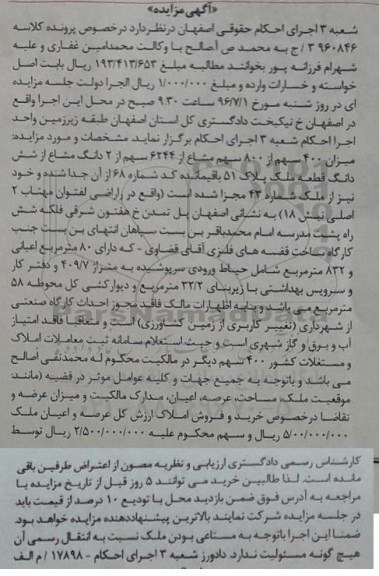 «آگهی مزایده»
شعبه ۳ اجرای احکام حقوقی اصفهان درنظر دارد درخصوص پرونده کلاسه
۹۶۰۸۴۶ / ۳ ج به محمد ص أصالح با وکالت محمدامین غفاری و علیه
شهرام فرزانه پور بخوانند مطالبه مبلغ ۱۹۳/۴۱۳/۶۵۳ ریال بابت اصل
خواسته و خسارات وارده و مبلغ ۱/۰۰۰/۰۰۰ ریال الجرا دولت جلسه مزایده
ای در روز شنبه مورخ ۹۶/۷/۱ ساعت ۹:۳۰ صبح در محل این اجرا واقع
در اصفهان خ نیکبخت دادگستری کل استان اصفهان طبقه زیرزمین واحد
اجرا احکام شعبه ۳ اجرای احکام برگزار نماید. مشخصات و مورد مزایده:
میزان ۴۰۰ سهم از ۸۰۰ سهم مشاع از ۶۲۴۴ سهم از ۲ دانگ مشاع از شش
دانگ قطعه ملک پلاک ۵۱ باقیمانده کد شماره ۶۸ از آن جدا شده و خود
نیز از ملک شماره ۴۳ مجزا شده است (واقع در اراضی لفتوان مهتاب ۲
اصلی بخش ۱۸) به نشانی اصفهان پل تمدن خ هفتون شرقی فلکه شش
راه پشت مدرسه امام محمدباقر بن بست سپاهان انتهای بن بست جنب
کارگاه ساخت قفسه های فلزی آقای قضاوی - که دارای ۸۰ مترمربع اعیانی
و ۸۳۲ مترمربع شامل حیاط ورودی سرپوشیده به متراژ ۴۰۹/۷ و دفتر کار
و سرویس بهداشتی با زیربنای ۳۲/۲ مترمربع و دیوارکشی کل محوطه ۵۸
مترمربع می باشد و بنابه اظهارات مالک فاقد مجوز احداث کارگاه صنعتی
از شهرداری (تغییر کاربری از زمین کشاورزی) است و متعاقباً فاقد امتیاز
آب و برق و گاز شهری است و حسب استعلام سامانه ثبت معاملات املاک
و مستغلات کشور ۴۰۰ سهم دیگر در مالکیت محکوم له محمدتقی أصالح
می باشد و باتوجه به جمیع جهات و کلیه عوامل موثر در قضیه (مانند
موقعیت ملک، مساحت، عرصه، اعیان، مدارک مالکیت و میزان عرضه و
تقاضا درخصوص خرید و فروش املاک ارزش کل عرصه و اعیان ملک
۵/۰۰۰/۰۰۰/۰۰۰ ریال و سهم محکوم علیه ۲/۵۰۰/۰۰۰/۰۰۰ ریال توسط
کارشناس رسمی دادگستری ارزیابی و نظریه مصون از اعتراض طرفین باقی
مانده است. لذا طالبین خرید می توانند ۵ روز قبل از تاریخ مزایده با
مراجعه به آدرس فوق ضمن بازدید محل با تودیع ۱۰ درصد از قیمت باید
در جلسه مزایده شرکت نمایند بالاترین پیشنهاددهنده مزایده خواهد بود.
ضمنا این اجرا باتوجه به مشاعی بودن ملک نسبت به انتقال رسمی آن
هیچ گونه مسئولیت ندارد. دادورز شعبه ۳ اجرای احکام - ۱۷۸۹۸ / م الف